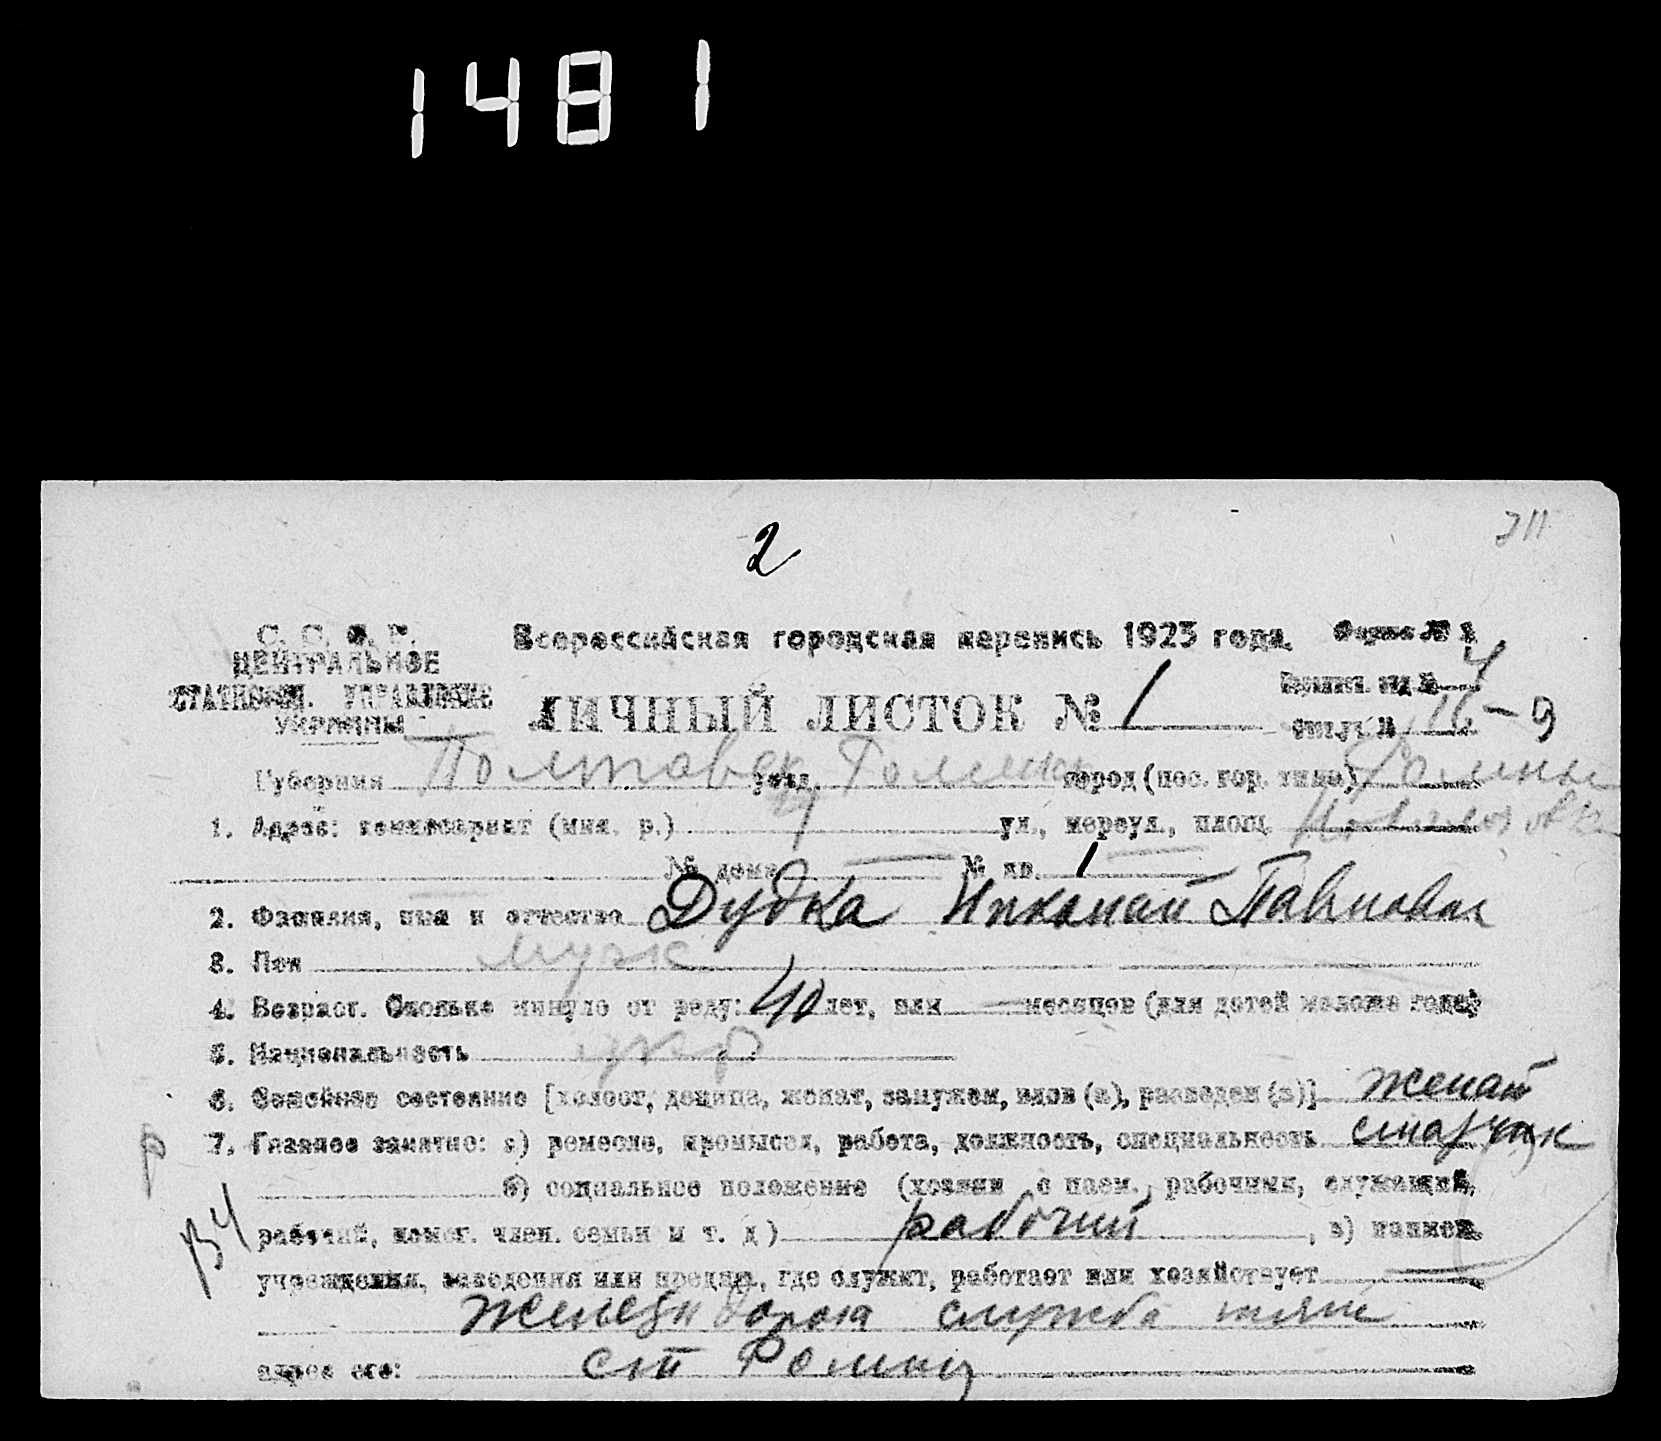 1481
2
С. С. С. Р.
ЦЕНТРАЛЬНОЕ
СТАТИСТИЧ. УПРАВЛЕНИЕ
УКРАИНЫ
Всероссийская городская перепись 1923 года.
Форма №
ЛИЧНЫЙ ЛИСТОК № 1
4
- 9
Губерния Полтавск уезд Роменск город (пос. гор. типа) Ромны
1. Адрес: комиссариат (мил. р.) ул., переул., площ.
№ дома — № кв. 1
2. Фамилия, имя и отчество Дудка Николай Павлович
3. Пол муж
4. Возраст. Сколько минуло от роду: 40 лет, или — месяцев (для детей моложе года)
5. Национальность укр
6. Семейное состояние [холост, девица, женат, замужем, вдов (а), разведен (а)] женат
р
7. Главное занятие: а) ремесло, промысел, работа, должность, специальность
б) социальное положение (хозяин с наем. рабочими, служащий,
В4
рабочий, помог. член. семьи и т. д) рабочий, в) наимен.
учреждения, заведения или предпр., где служит, работает или хозяйствует
Железн дорога служба тяги
адрес его: ст Ромны